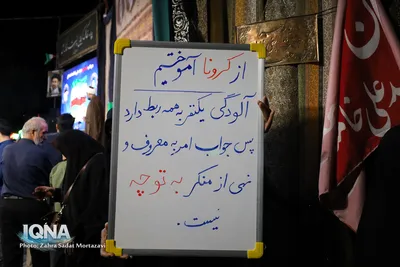 از کرونا آموختیم
آلودگی یکنفر به همه ربط دارد
پس جواب امر به معروف و
نهی از منکر به تو چه
نیست.
IQNA
Photo: Zahra Sadat Mortazavi
IQNA